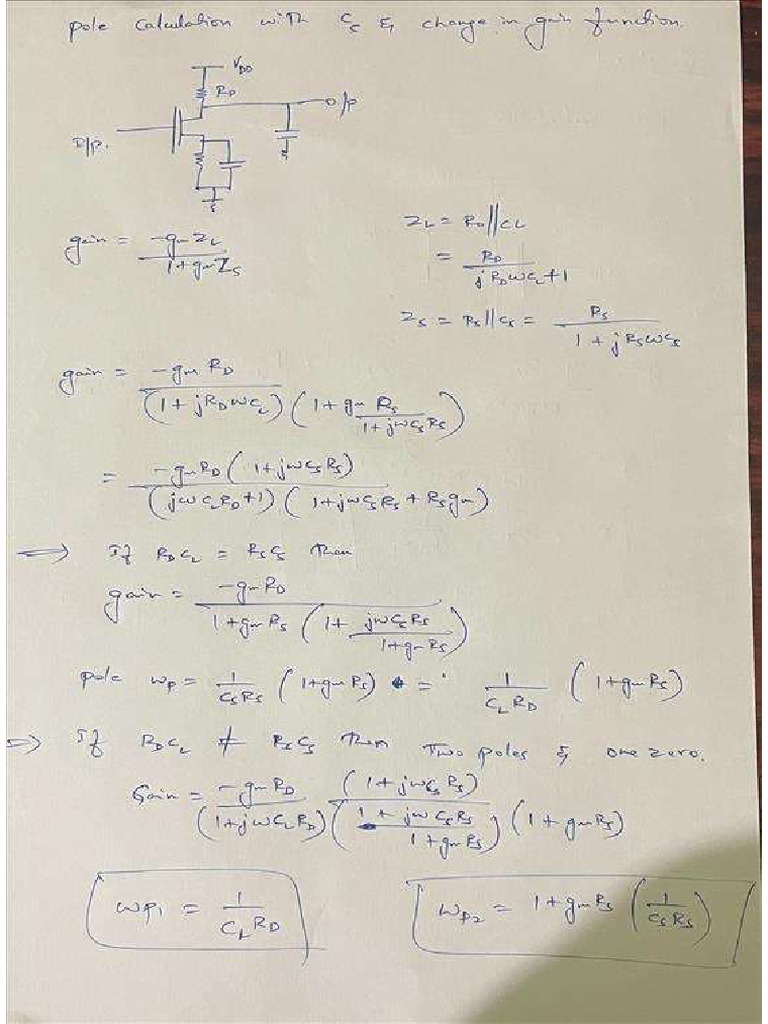 pole calculation with Cs & change in gain function.
VDD
RD
O/P
I/P.
gain = -gm ZL / 1+gm Zs
ZL = RD||CL
= RD / jRDωCL+1
Zs = Rs||Cs = Rs / 1+jRsωCs
gain = -gm RD / (1+jRDωCL) (1+gm Rs / 1+jωCsRs)
= -gmRD (1+jωCsRs) / (jωCLRD+1) (1+jωCsRs+Rsgm)
⇒ If RDCL = RsCs then
gain = -gmRD / 1+gmRs (1+ jωCsRs / 1+gmRs)
pole ωp = 1/CsRs (1+gmRs) = 1/CLRD (1+gmRs)
⇒ If RDCL ≠ RsCs then Two poles & one zero.
Gain = -gmRD (1+jωCsRs) / (1+jωCLRD) (1+ jωCsRs / 1+gmRs) (1+gmRs)
ωp1 = 1/CLRD
ωp2 = 1+gmRs (1/CsRs)